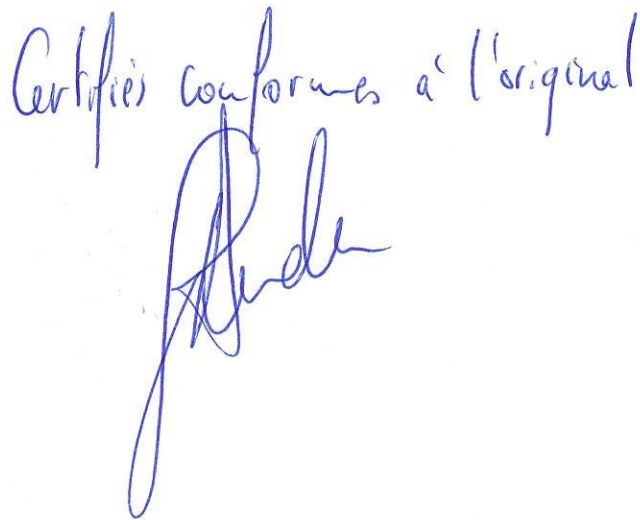 Certifiés conformes à l'original